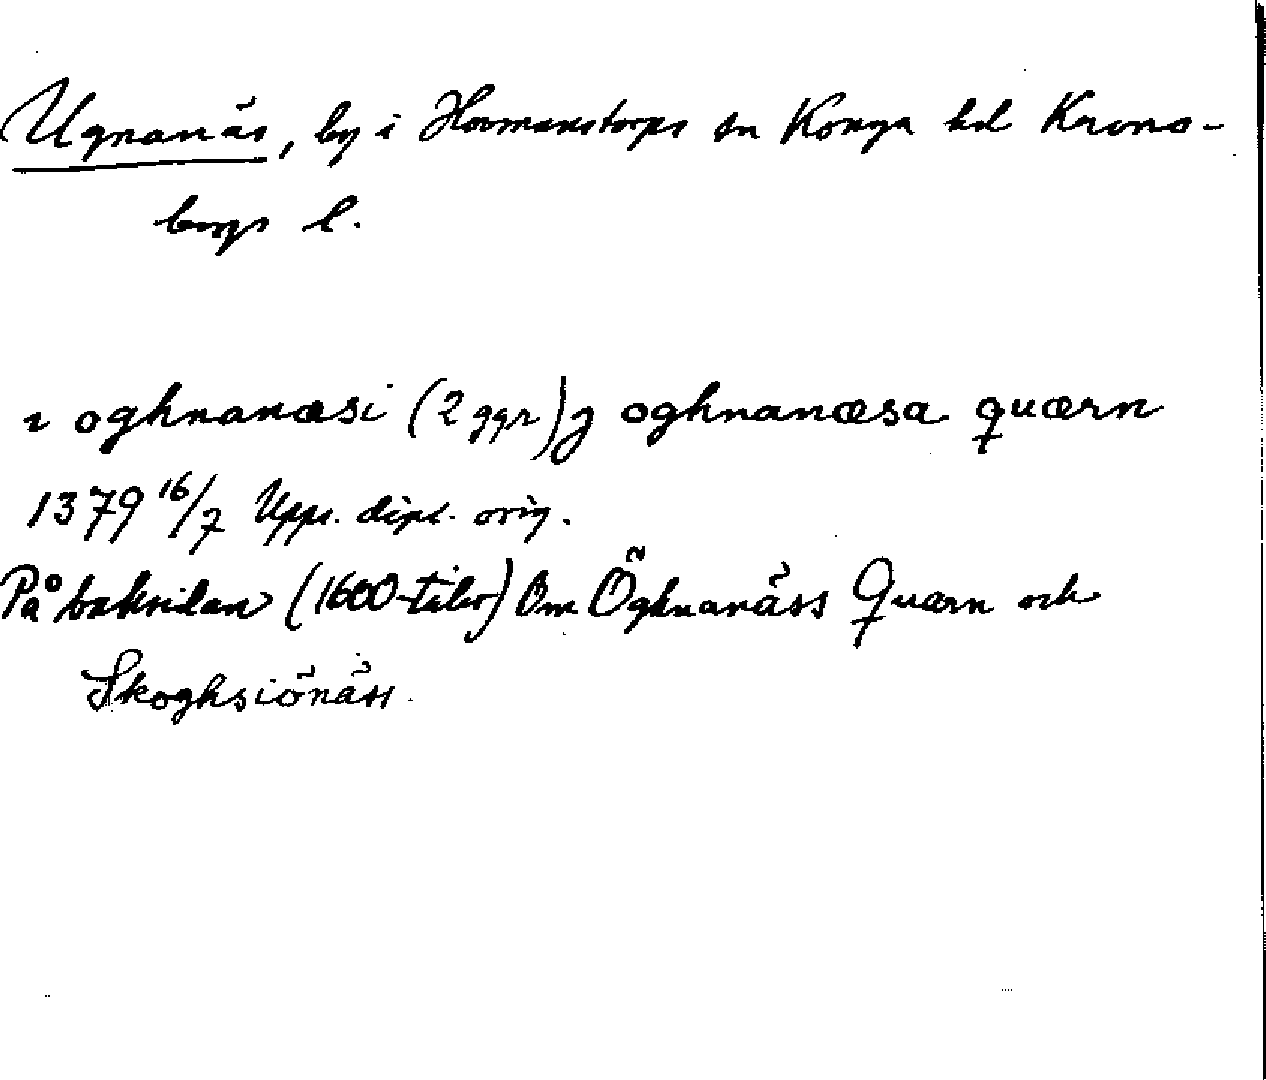 Ugnanäs, by i Hovmanstorps sn Konga hd Krono-
bergs l.
i oghnanæsi (2 ggr) j oghnanæsa quærn
1379 16/7 Upps. dipl. orig.
På baksidan (1600-talet) Om Öghnanäss Quarn och
Skoghsiönäss